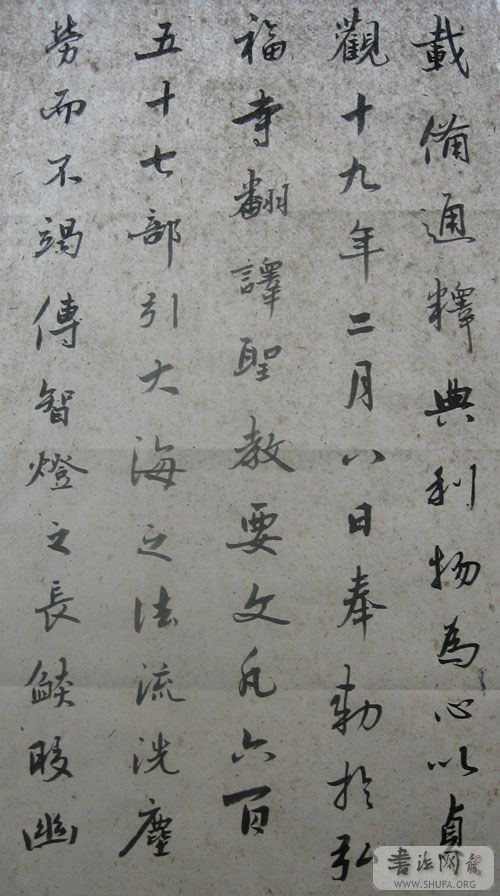 載備通釋典利物為心以貞
觀十九年二月八日奉勅於弘
福寺翻譯聖教要文凡六百
五十七部引大海之法流洗塵
勞而不竭傳智燈之長燄皎幽
書法网
WWW.SHUFA.ORG